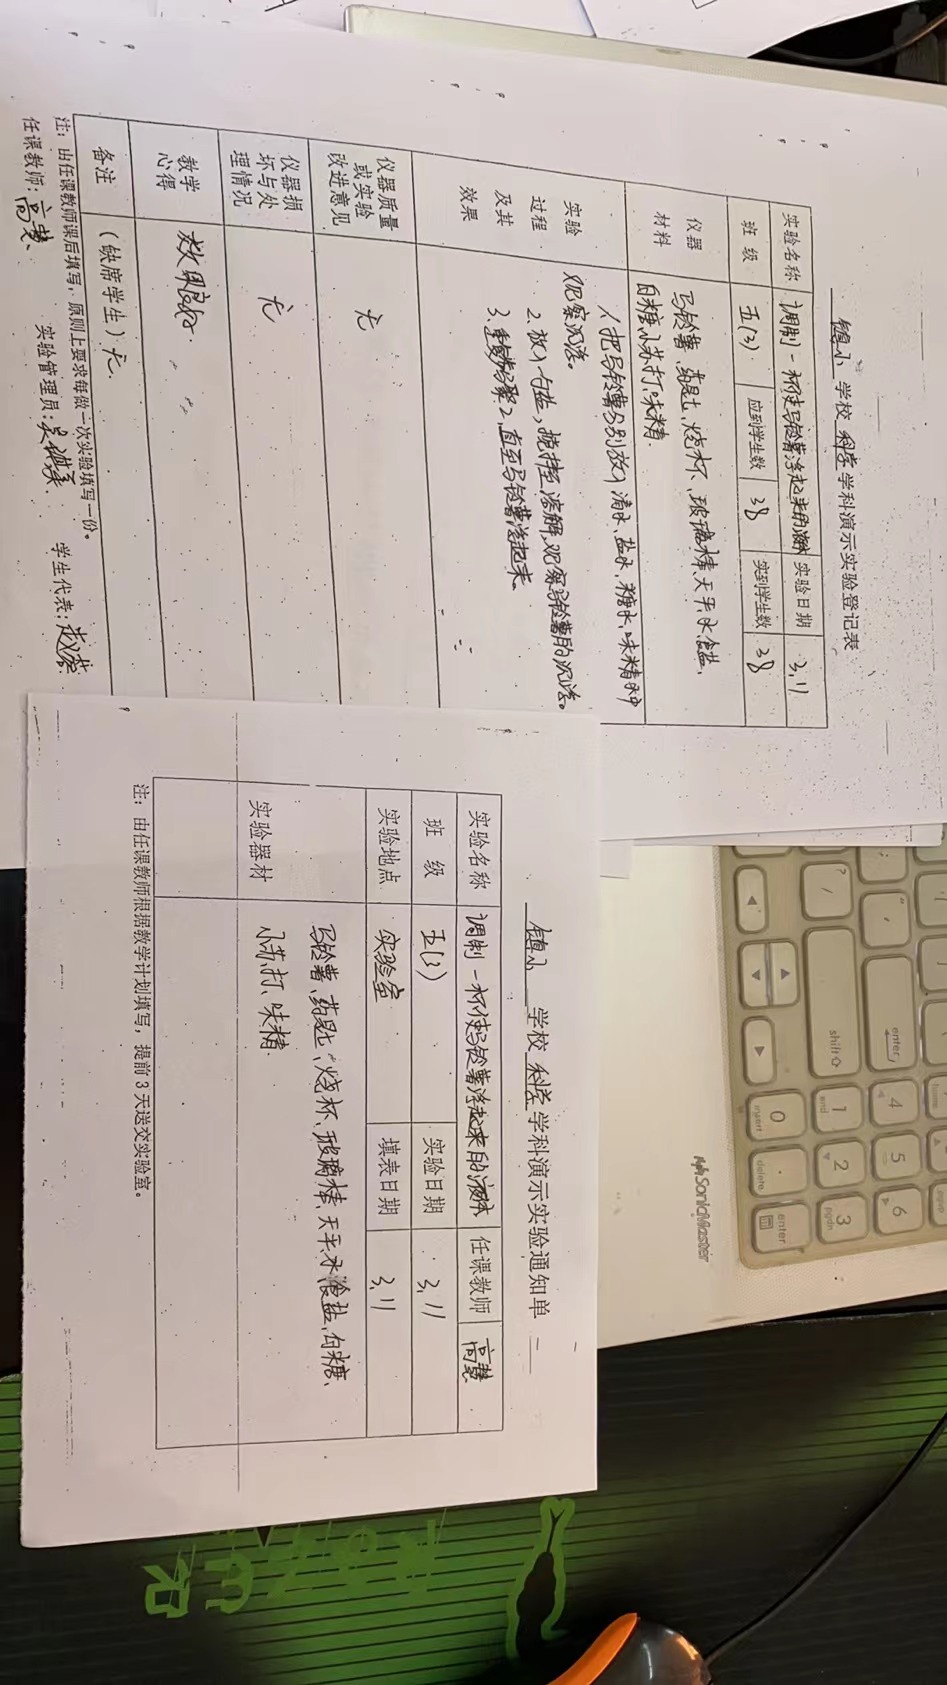 镇小 学校 科学 学科演示实验登记表
实验名称 调制一杯使马铃薯浮起来的液体 实验日期 3.11
班 级 五(3) 应到学生数 38 实到学生数 38
仪器材料 马铃薯、药匙、烧杯、玻璃棒、天平、水、食盐、
白糖、小苏打、味精
实验过程及其效果 1.把马铃薯分别放入清水、盐水、糖水、味精水中
观察沉浮。
2.放入勺盐,搅拌至溶解,观察马铃薯的沉浮。
3.重复步骤2,直至马铃薯浮起来。
仪器质量或实验改进意见 无
仪器损坏与处理情况 无
教学心得 效果很好.
备注 (缺席学生)无.
注:由任课教师课后填写,原则上要求每做一次实验填写一份。
任课教师:高慧 实验管理员: 学生代表:
镇小 学校 科学 学科演示实验通知单
实验名称 调制一杯使马铃薯浮起来的液体 任课教师 高慧
班 级 五(3) 实验日期 3.11
实验地点 实验室 填表日期 3.11
实验器材 马铃薯、药匙、烧杯、玻璃棒、天平、水、食盐、白糖、
小苏打、味精.
注:由任课教师根据教学计划填写,提前3天送交实验室。
SonicMaster
enter
shift
? /
0 insert
. delete
enter
1 end
2
3 pgdn
4
5
6